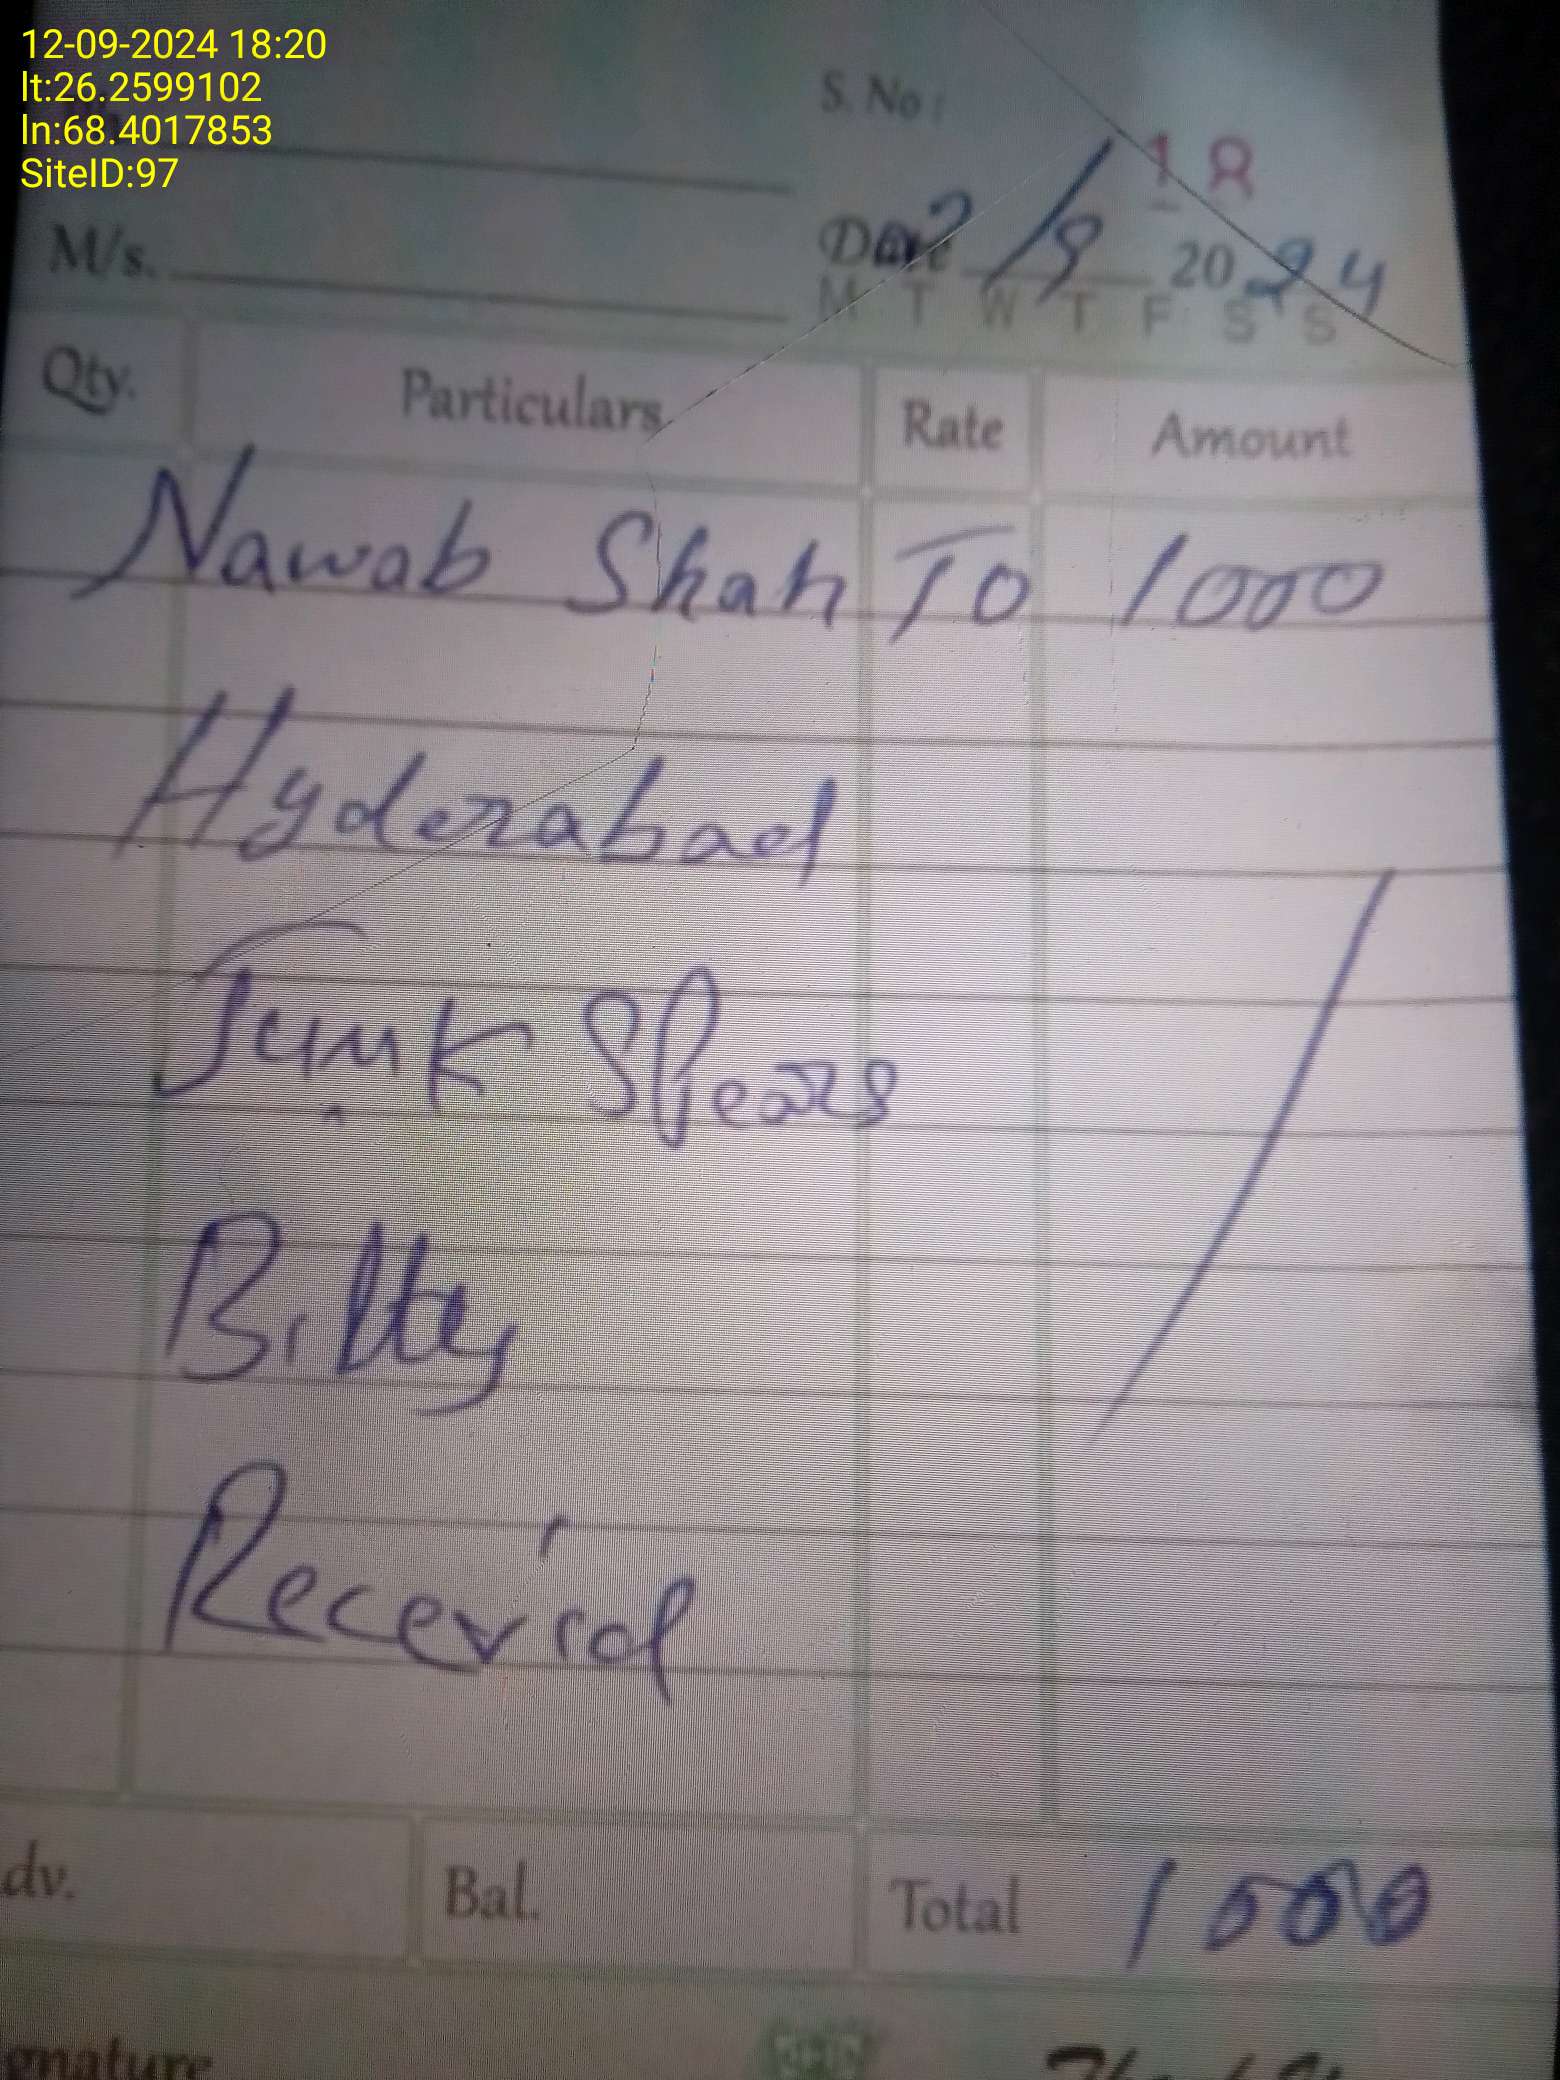 12-09-2024 18:20
lt:26.2599102
ln:68.4017853
SiteID:97
S. No :
18
M/s.
Date 2/9 2024
M T W T F S S
Qty. Particulars Rate Amount
Nawab Shah To 1000
Hyderabad
Junk Spears
Bilty
Recevid
dv. Bal. Total 1000
gnature